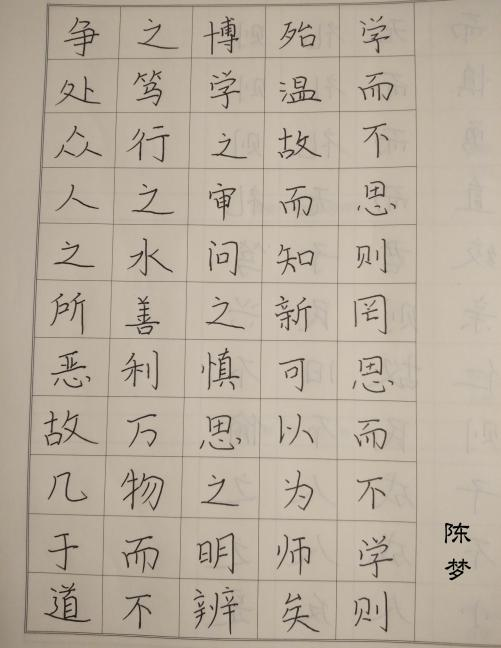 学而不思则罔思而不学则
殆温故而知新可以为师矣
博学之审问之慎思之明辨
之笃行之水善利万物而不
争处众人之所恶故几于道
陈梦